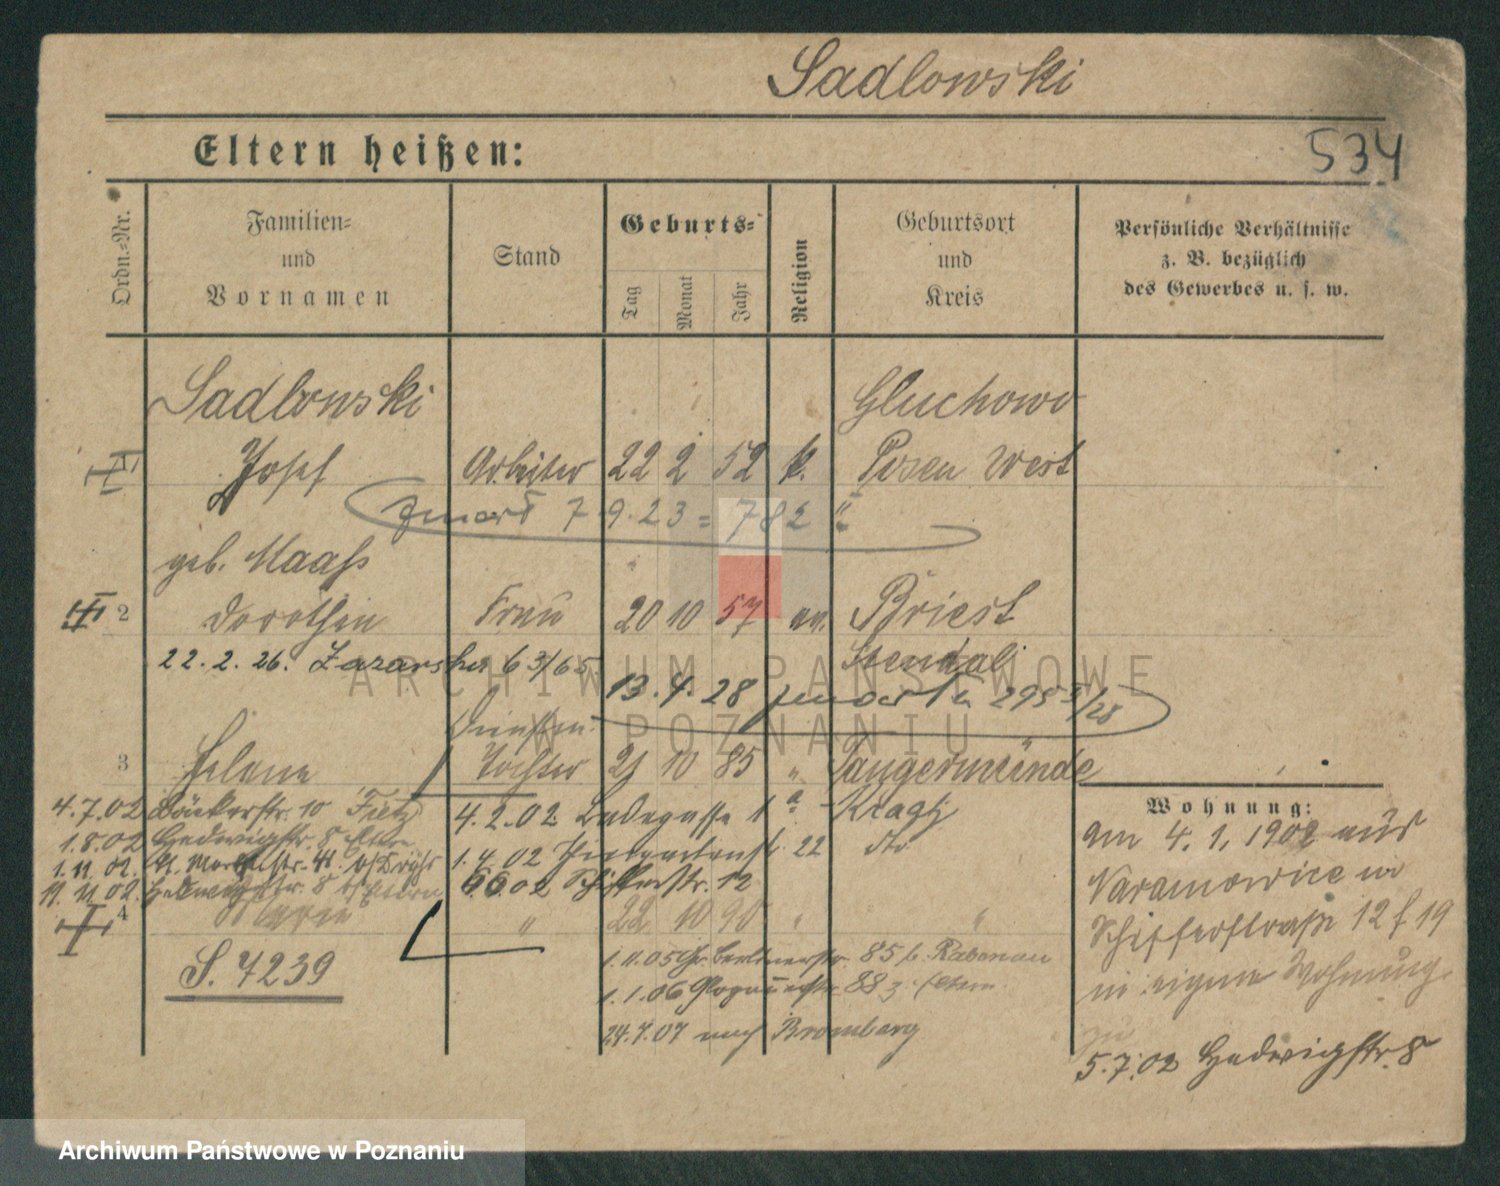 Sadlowski
534
Eltern heißen:
Ordn.=Nr.
Familien=
und
Vornamen
Stand
Geburts=
Tag
Monat
Jahr
Religion
Geburtsort
und
Kreis
Persönliche Verhältnisse
z. B. bezüglich
des Gewerbes u. s. w.
Sadlowski Gluchowo
Josef Arbeiter 22 2 52 k. Posen West
zmarł 7.9.23 = 782
geb. Maaß
2 Dorothea Frau 20 10 57 ev. Briest
22.2.26. Łazarska 63/65 Stendal
13.4.28 zmarła 295
3 Helene Tochter 21 10 85 " Tangermünde
Wohnung:
4.7.02 Bäckerstr. 10 4.2.02 Badegasse 1a
am 4.1.1902 aus
1.8.02 Hedwigstr. 8 Eltern
1.11.02. 1.4.02 22
Naramowice in
11.11.02. Hedwigstr. 8 Eltern 6.6.02 Schifferstr. 12
4 Marie " 22 10 90 " "
Schifferstraße 12 f 19
S. 7239
1.11.05 Gr. Berlinerstr. 85 b. Rabenau
in eigene Wohnung.
1.1.06 Glogauerstr. 88
24.7.07 nach Bromberg
5.7.02 Hedwigstr. 8
ARCHIWUM PAŃSTWOWE
W POZNANIU
Archiwum Państwowe w Poznaniu